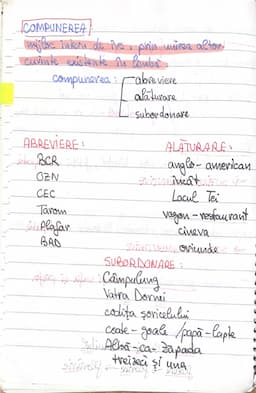 COMPUNEREA
mijloc intern de îvs, prin unirea altor
cuvinte existente în limbă
compunerea: abreviere
alăturare
subordonare
ABREVIERE:
BCR
OZN
CEC
Tarom
Plafar
BRD
ALĂTURARE:
anglo-american
încât
Lacul Tei
vagon-restaurant
cineva
oriunde
SUBORDONARE:
Câmpulung
Vatra Dornei
codița șoricelului
coate-goale / papă-lapte
Albă-ca-Zăpada
treizeci și una